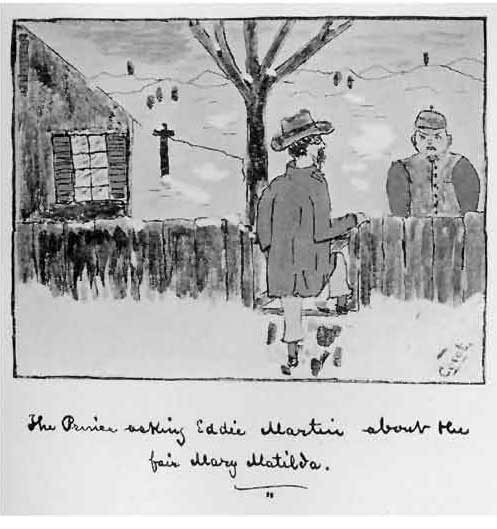 The Prince asking Eddie Martin about the
fair Mary Matilda.
"